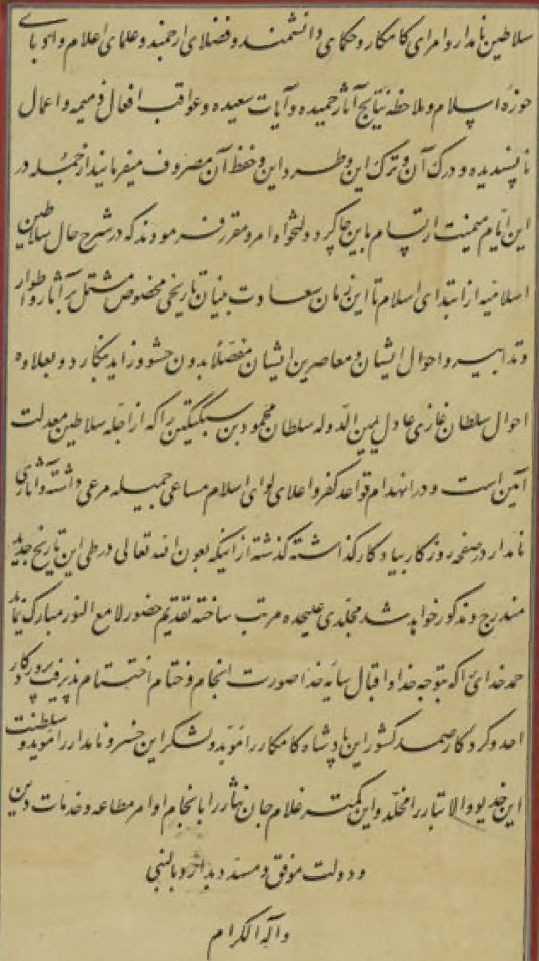 سلاطین نامدار و امرای کامکار و حکمای دانشمند و فضلای ارجمند و علمای اعلام و اولیای
حوزه اسلام و ملاحظه نتایج آثار حمیده و آیات سعیده و عواقب افعال ذمیمه و اعمال
ناپسندیده و درک آن و ترک این و طرد این و حفظ آن مصروف میفرمایند از جمله در
این ایام میمنت ارتسام باین چاکر دولتخواه امر و مقرر فرمودند که در شرح حال سلاطین
اسلامیه از ابتدای اسلام تا این زمان سعادت بنیان تاریخی مخصوص مشتمل بر آثار و اطوار
و تدابیر و احوال ایشان و معاصرین ایشان مفصلا بدون حشو و زاید بنگارد و بعلاوه
احوال سلطان غازی عادل یمین الدوله سلطان محمود بن سبکتکین را که از اجله سلاطین معدلت
آئین است و در انهدام قواعد کفر و اعلای لوای اسلام مساعی جمیله مرعی داشته و آثاری
نامدار در صفحه روزگار بیادگار گذاشته گذشته از اینکه بعون الله تعالی در طی این تاریخ جدید
مندرج و مذکور خواهد شد مجلدی علیحده مرتب ساخته تقدیم حضور لامع النور مبارک نماید
حمد خدائیرا که بتوجه خدا و اقبال سایه خدا صورت انجام و ختام اختتام پذیرفت پروردگار
احد و کردگار صمد کشور این پادشاه کامکار را مؤبد و لشکر این خسرو نامدار را مؤید و سلطنت
این خدیو والا تبار را مخلد و این کمتر غلام جان نثار را بانجام اوامر مطاعه و خدمات دین
و دولت موفق و مسدد بدارد بالنبی
و آله الکرام